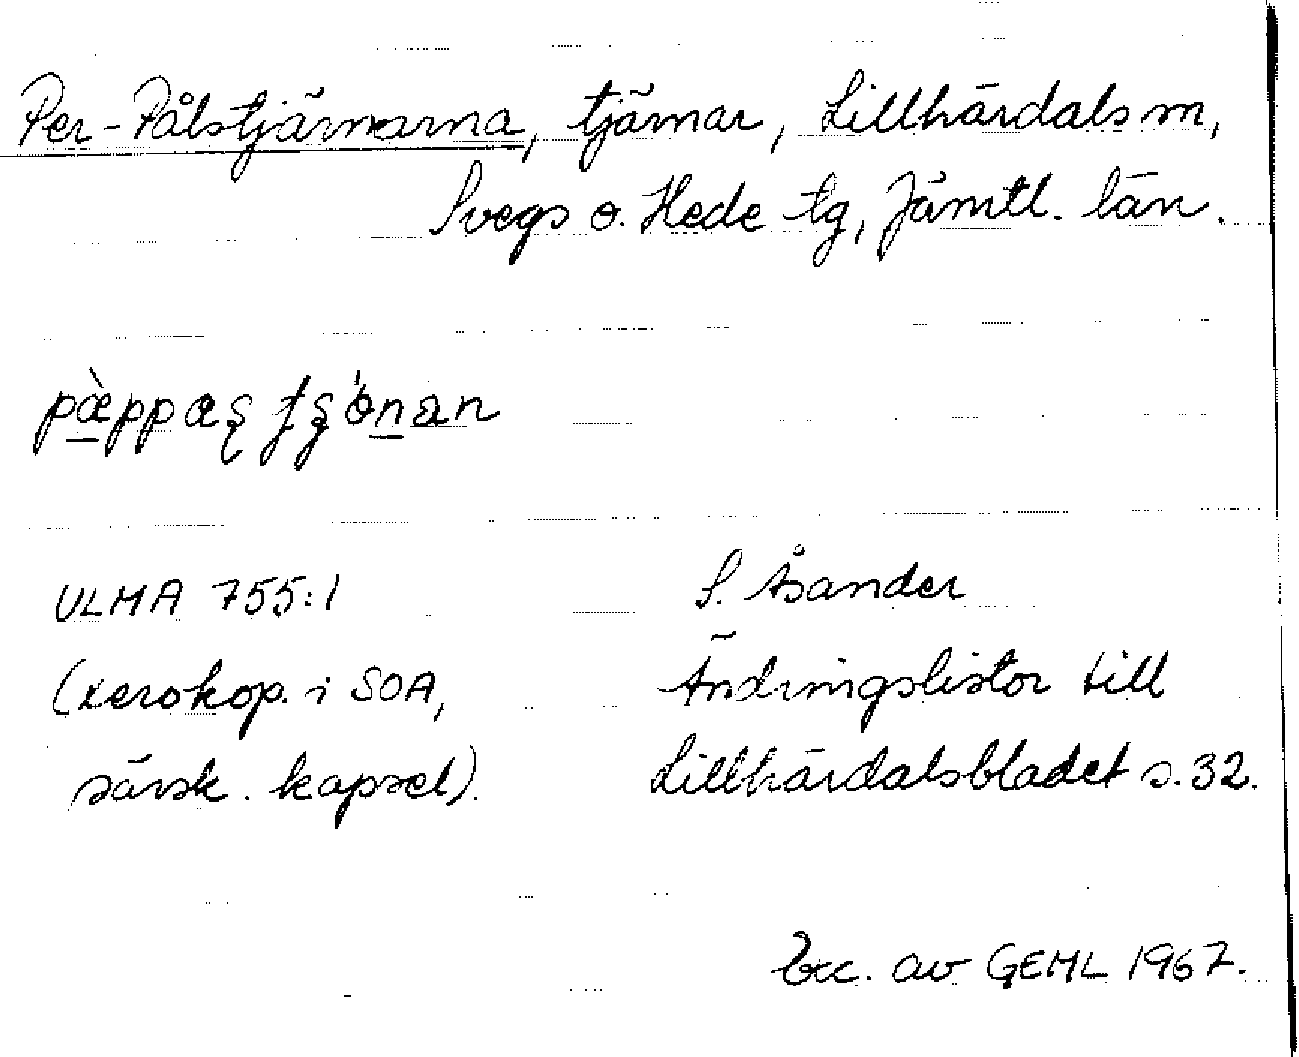 Per-Pålstjärnarna, tjärnar, Lillhärdals sn,
Svegs o. Hede tg, Jämtl. län.
pæ̀ppaʂ
ULMA 755:1
S. Åsander
(xerokop. i SOA,
Ändringslistor till
särsk. kapsel).
Lillhärdalsbladet s. 32.
Exc. av GEML 1967.